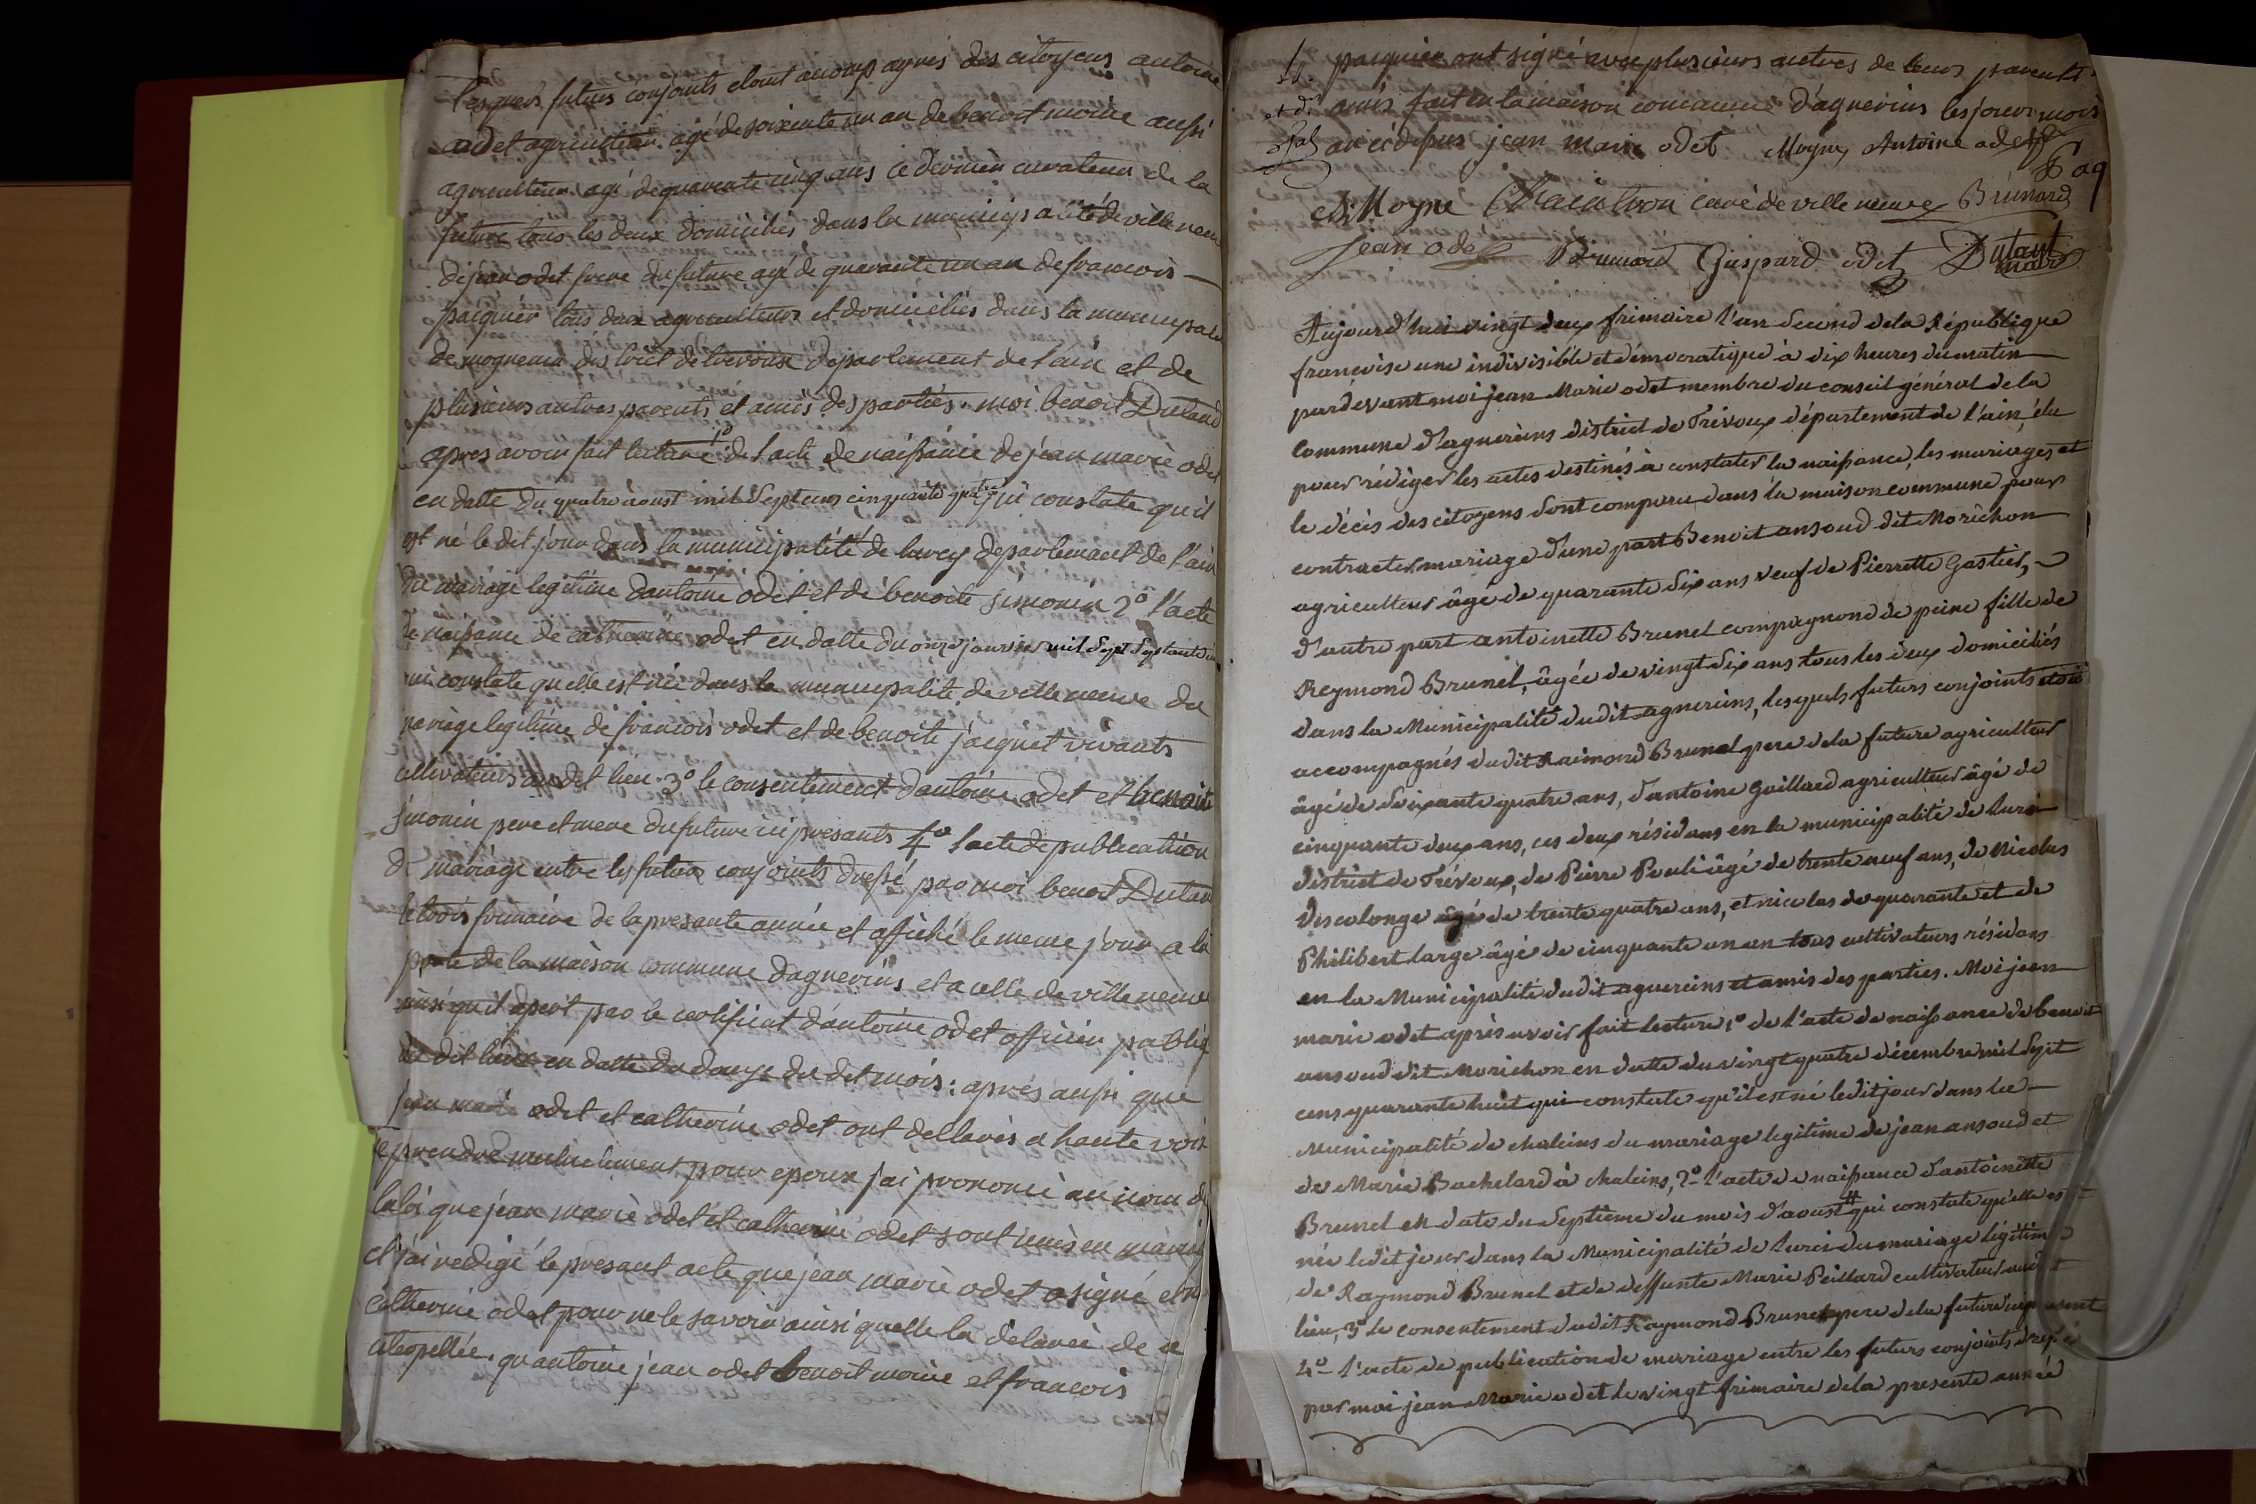 lesquels futurs conjoints etant accompagnés des citoyens antoine
odet agriculteur agé de soixente un an de benoit moine aussi
agriculteur agé de quarente cinq ans ce dernier curateur de la
future tous les deux domiciliés dans la municipalité de ville neuve
de jean odet frere du future agé de quarante un an de francois
paiquier tous deux agriculteurs et domiciliés dans la municipale
de mognenein district de trevoux departement de l'ain et de
plusieurs autres parents et amis des parties. moi benoit Dutand
apres avoir fait lecture 1o de l'acte de naissance de jean marie odet
en datte du quatre aoust mil sept cens cinquante quatre qui constate qu'il
est né le dit jour dans la municipalité de lurcy departement de l'ain
du mariage legitime d'antoine odet et de benoite simonin 2o l'acte
de naissance de catherine odet en datte du onze janvier mil sept septante
ui constate quelle est née dans la municipalité de ville neuve du
mariage legitime de francois odet et de benoite jacquet vivants
ultivateurs au dit lieu 3o le consentement d'antoine odet et benoite
simonin pere et mere du future ici presants 4o l'acte de publication
de mariage entre les futurs conjoints dressé par moi benoit Dutan
le trois frimaire de la presante année et affiché le meme jour a la
porte de la maison commune dagnerins et a celle de ville neuve
ainsi qu'il apert par le certificat d'antoine odet officier public
du dit lieu en datte du douze du dit mois: après aussi que
jean marie odet et catherine odet ont dellarés a haute voix
se prendre mutuelement pour epoux j'ai prononcé au nom de
la loi que jean marie odet et catherine odet sont unis en mariage
et j'ai redigé le presant acte que jean marie odet a signé et n
catherine odet pour ne le savoir ainsi quelle la déclaré de ce
interpellée. qu'antoine jean odet benoit moine et francois
paiquier ont signé avec plusieurs autres de leurs parents
et amis fait en la maison commune d'agnerins les jour mois
an ci dessus jean marie odet Moyne Antoine odet
Moyne curé de ville neuve Brunard
jean odet Brunard Guspard odet Dutant maire
Aujourd'hui vingt deux frimaire l'an second de la République
francoise une indivisible et démocratique à dix heures du matin
pardevant moi jean Marie odet membre du conseil général de la
Commune d'agnereins district de Trévoux département de l'ain, élu
pour rédiger les actes destinés à constater la naissance, les mariages et
le décès des citoyens sont comparu dans la maison commune pour
contracter mariage d'une part Benoit ansoud dit Morichon
agriculteur âgé de quarante six ans veuf de Pierrette Gastier,
d'autre part antoinette Brunel compagnond de peine fille de
Reymond Brunel, âgée de vingt six ans tous les deux domiciliés
dans la Municipalité dudit agnereins, lesquels futurs conjoints etoi
accompagnés dudit Raimond Brunel pere de la future agriculteur
âgé de soixante quatre ans, d'antoine Gaillard agriculteur âgé de
cinquante deux ans, ces deux résidans en la municipalité de Lurci
district de Trévoux, de Pierre Peuli âgé de trente neuf ans, de Nicolas
Descolonge âgé de trente quatre ans, et nicolas de quarante et de
Philibert large âgé de cinquante un an tous cultivateurs résidans
en la Municipalité dudit agnereins et amis des parties. Moi jean
marie odet après avoir fait lecture 1o de l'acte de naissance de benoit
ansoud dit Morichon en datte du vingt quatre décembre mil sept
cens quarante huit qui constate qu'il est né ledit jour dans la
Municipalité de chaleins du mariage legitime de jean ansoud et
de Marie Bachelard à chaleins, 2o l'acte de naissance d'antoinette
Brunel en date du septième du mois d'aoust # qui constate qu'elle est
née ledit jour dans la Municipalité de Lurci du mariage légitime
de Raymond Brunel et de deffunte Marie Peillard cultivateur audit
lieu, 3o le consentement dudit Raymond Brunel pere de la future ici present
4o l'acte de publication de mariage entre les futurs conjoints dressé
par moi jean Marie odet le vingt frimaire de la presente année